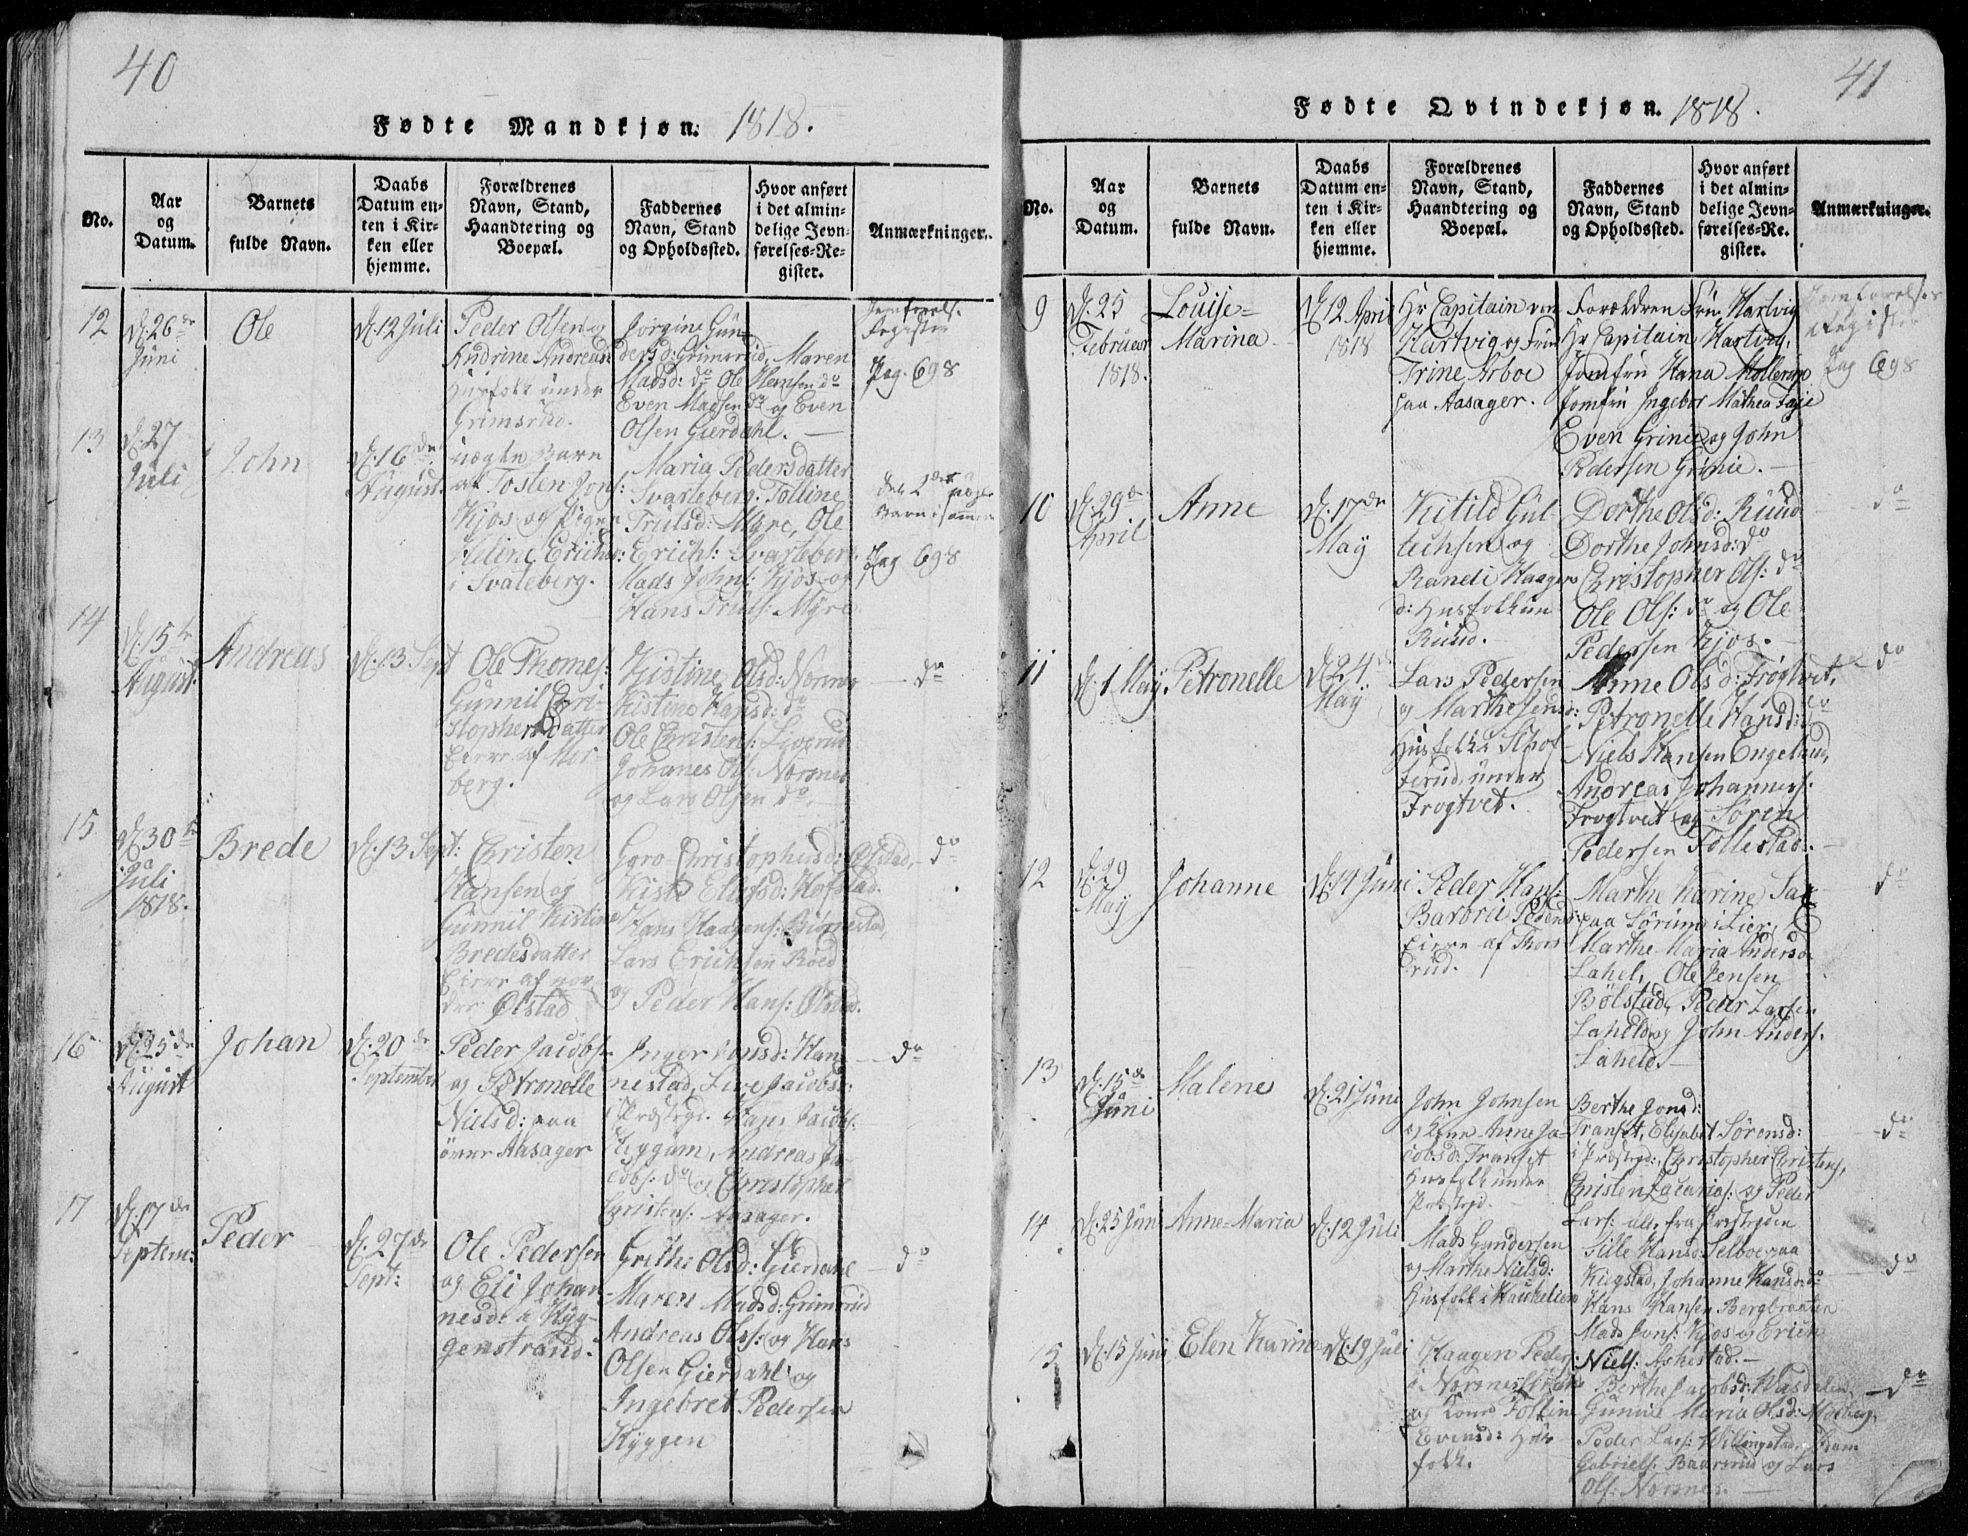 40
Fødte Mandkjøn. 1818.
No.
Aar
og
Datum.
Barnets
fulde Navn.
Daabs
Datum en-
ten i Kir-
ken eller
hjemme.
Forældrenes
Navn, Stand,
Haandtering og
Boepæl.
Faddernes
Navn, Stand
og Opholdssted.
Hvor anført
i det almin-
delige Jevn-
førelses-Re-
gister.
Anmærkninger.
12
D. 26de
Juni
Ole
D. 12 Juli
Peder Olsen og
Andrine Andreas
Husfolk under
Grimsrud.
Jørgine Gun-
dersd: Grimsrud, Maren
Madsd: do Ole Hansen do
Even Madsen do og Even
Olsen Gierdahl.
Register
Pag. 698
13
D. 27
Juli
John
D. 16de
August
uægte Barn
af Tosten Jons:
Kjos og Pigen
Heline Erichsd:
i Svateberg.
Maria Pedersdatter
Svarteberg, Tolline
Trulsd: Myre, Ole
Erichs: Svarteberg
Mads Johns: Kjos og
Hans Truls: Myre
Pag 698
14
D. 15de
August
Andreas
D. 13 Sept
Ole Thomes:
Gunnil Chri-
stophersdatter
Eiere af Mor-
berg.
Kistine Olsd: Norsnes
Kistine Hansd: do
Ole Christens:
Johanes Ols: Norsnes
og Lars Olsen do.
do
15
D. 30te
Juli
1818.
Brede
D. 13 Sept:
Christen
Hansen og
Gunnil Kistine
Bredesdatter
Eiere af nor-
dre Ølstad
Goro Christophersd: Ølstad,
Kisti Elefsd: Hofstad.
Hans Haagens: Biørnstad,
Lars Erichsen Røed
og Peder Hans: Ølstad.
do
16
D. 25de
August
Johan
D. 20de
September
Peder Jacobs:
og Petronelle
Nielsd: paa
øvre Aasager
Inger Jonsd: Han-
nestad, Live Jacobsd:
i Præstegr. Hans Jacobs:
Hyggum, Andreas Ja-
cobs: do og Christopher
Christens: Aasager.
do
17
D. 17de
Septem:
Peder
D. 27de
Sept:
Ole Pedersen
og Eli Johan-
nesd: i Hyg-
genstrand.
Grethe Olsd: Gierdahl
Maren Madsd: Grimsrud
Andreas Ols: og Hans
Olsen Gierdahl og
Ingebret Pedersen
Hyggen
do
41
Fødte Qvindekjøn. 1818.
No.
Aar
og
Datum.
Barnets
fulde Navn.
Daabs
Datum en-
ten i Kir-
ken eller
hjemme.
Forældrenes
Navn, Stand,
Haandtering og
Boepæl.
Faddernes
Navn, Stand
og Opholdssted.
Hvor anført
i det almin-
delige Jevn-
førelses-Re-
gister.
Anmærkninger.
9
D. 25
Februar
1818.
Louise=
Marina
D. 12 April
1818
Hr Capitain von
Hartvig og Frue
Trine Arboe
paa Aasager.
Forældren Frue Hartvig
Hr Capitain Hartvig,
Jomfru Hana Møllerup
Jomfru Ingebor Mathea Faje
Even Grinie og John
Pedersen Grinie.
Jemførelses
Register
Pag 698
10
D. 29de
April
Anne
D. 17de
May
Kitild Gul-
lechsen og
Randi Haagens
d: Husfolk un
Ruud.
Dorthe Olsd: Ruud
Dorthe Johnsd: do
Christopher Ols: do
Ole Ols: do og Ole
Pedersen Kjos.
do
11
D. 1 May
Petronelle
D. 24
May
Lars Pedersen
og Marthe Jensd:
Husfolk i Slof-
ferud under
Frogtvet.
Anne Olsd: Frogtvet,
Petronelle Hansd: do
Niels Hansen Engelund,
Andreas Johannes:
Frogtvet og Søren
Pedersen Follestad.
do
12
D. 29
May
Johanne
D. 14 Juni
Peder Hans:
Barbrei Pedersd:
Eiere af Thors-
rud.
Marthe Karine Sax
paa Sørum i Lier,
Marthe Maria Andersd
Lahel, Ole Jensen
Bølstad, Peder Larsen
Laheld og John Anders.
Laheld.
do
13
D. 15de
Juni
Malene
D. 21 Juni
John Johnsen
og Kone Anne Ja-
cobsd: Transet
Husfolk under
Præstegd.
Berthe Jonsd:
Transet, Elisabet Sørensd:
i Præstegd:, Christopher Christens,
Christen Zacarias: og Peder
Lars: alle fra Præstegden
do
14
D. 25 Juni
Anne=Maria
D. 12 Juli
Mads Gundersen
og Marthe Nielsd:
Husfolk i Haukelien
Sille Hansd: Selboe paa
Kiegstad, Johanne Hansd: do
Hans Hansen Bergbraaten
Mads Jons: Kjos og Erich
Niels: Askestad.
do
15
D. 15 Juni
Elen Karine
D. 19 Juli
Haagen Peders:
i Norsnes
og Kone Tolline
Evensd: Hus-
folk.
Berthe Jacobsd:
Gunnie Maria Olsd: Morberg,
Peder Lars: Willingstad,
Gabriels: Baarsrud og Lars
Ols: Norsnes.
do